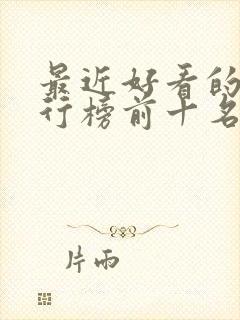 最近好看的
行榜前十名
片雨